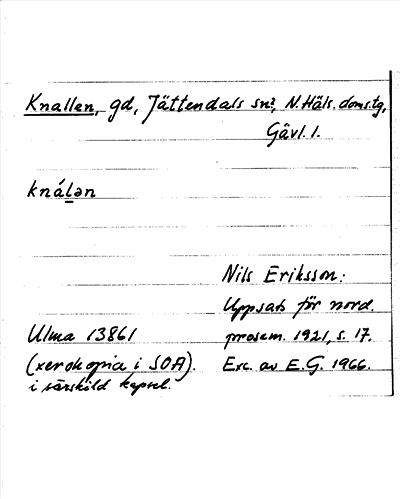 Knallen, gd, Jättendals sn, N. Häls. doms.tg,
Gävl. l.
knálən
Nils Eriksson:
Uppsats för nord.
Ulma 13861 prosem. 1921, s. 17.
(xerokopia i SOA). Exc. av E.G. 1966.
i särskild kapsel.